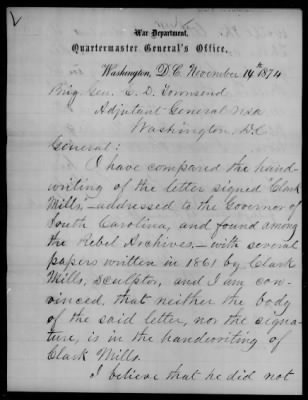 War Department,
Quartermaster General's Office,
Washington, D.C. November 14th 1874
Brig. Gen. E. D. Townsend
Adjutant General USA
Washington, D.C
General:
I have compared the hand-
writing of the letter signed "Clark
Mills," addressed to the Governor of
South Carolina, and found among
the Rebel Archives,- with several
papers written in 1861 by Clark
Mills, Sculptor, and I am con-
vinced that neither the body
of the said letter, nor the signa-
ture, is in the handwriting of
Clark Mills.
I believe that he did not